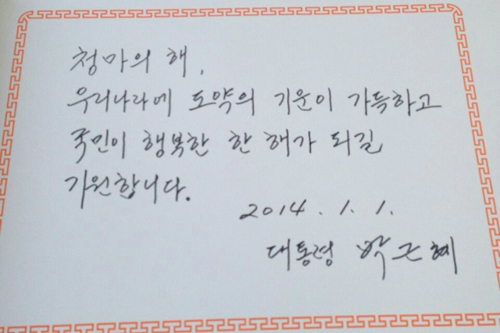 청마의 해,
우리나라에 도약의 기운이 가득하고
국민이 행복한 한 해가 되길
기원합니다.
2014. 1. 1.
대통령 박근혜